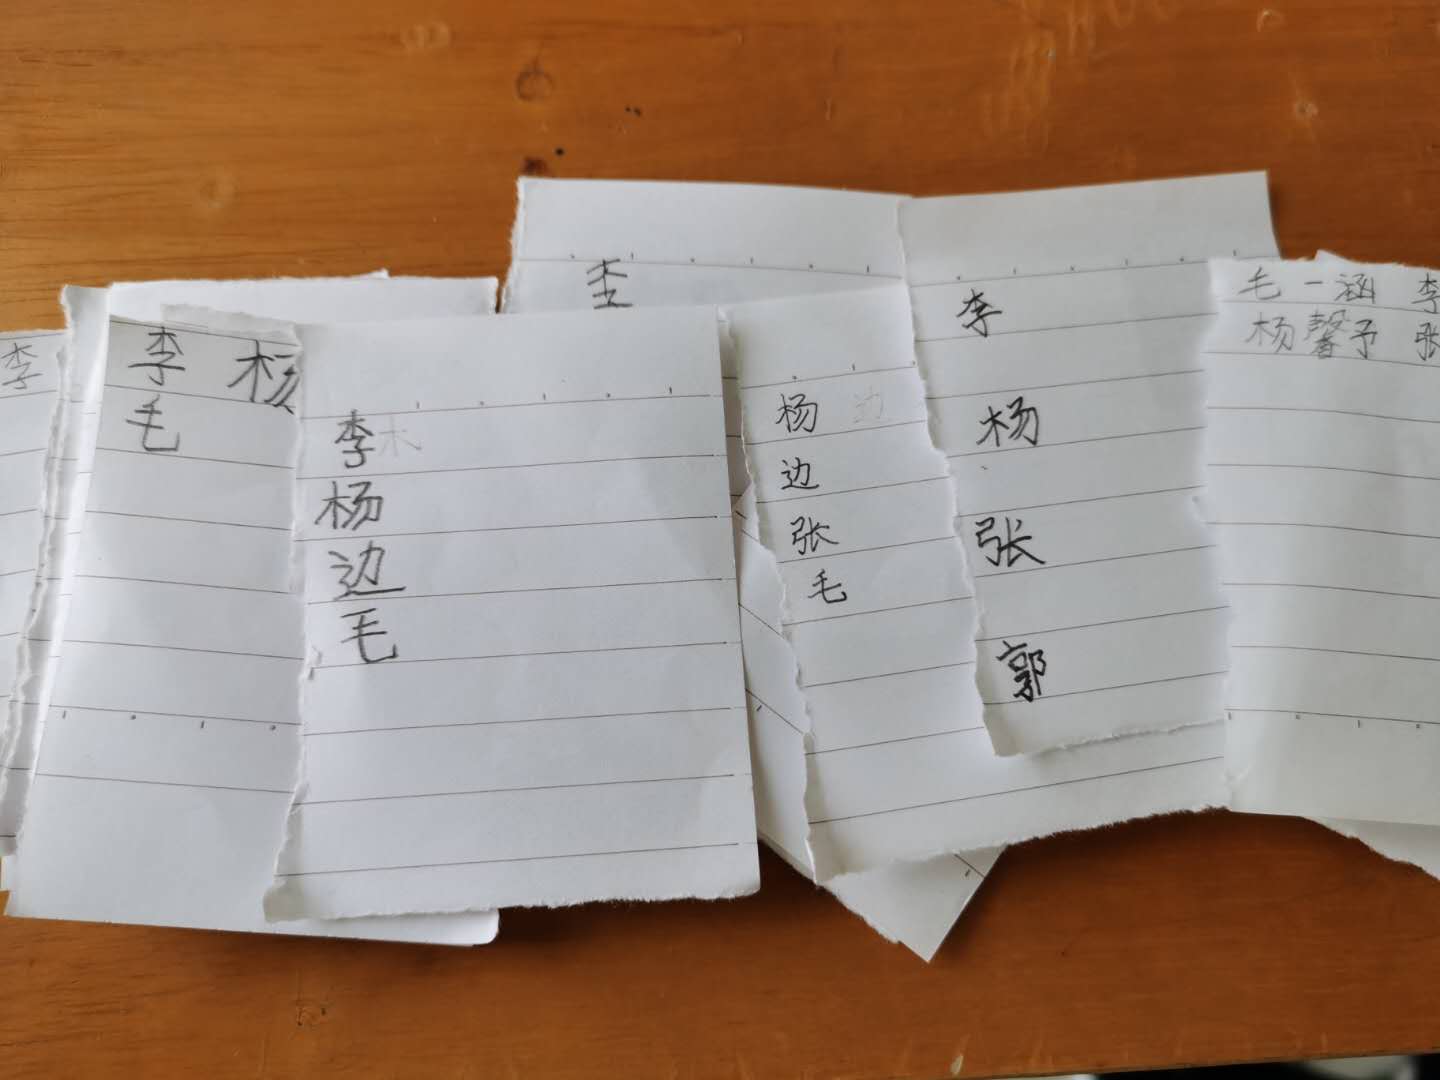 李
李 杨
毛
李
杨
边
毛
李
杨
边
张
毛
李
杨
张
郭
毛一涵 李
杨馨予 张